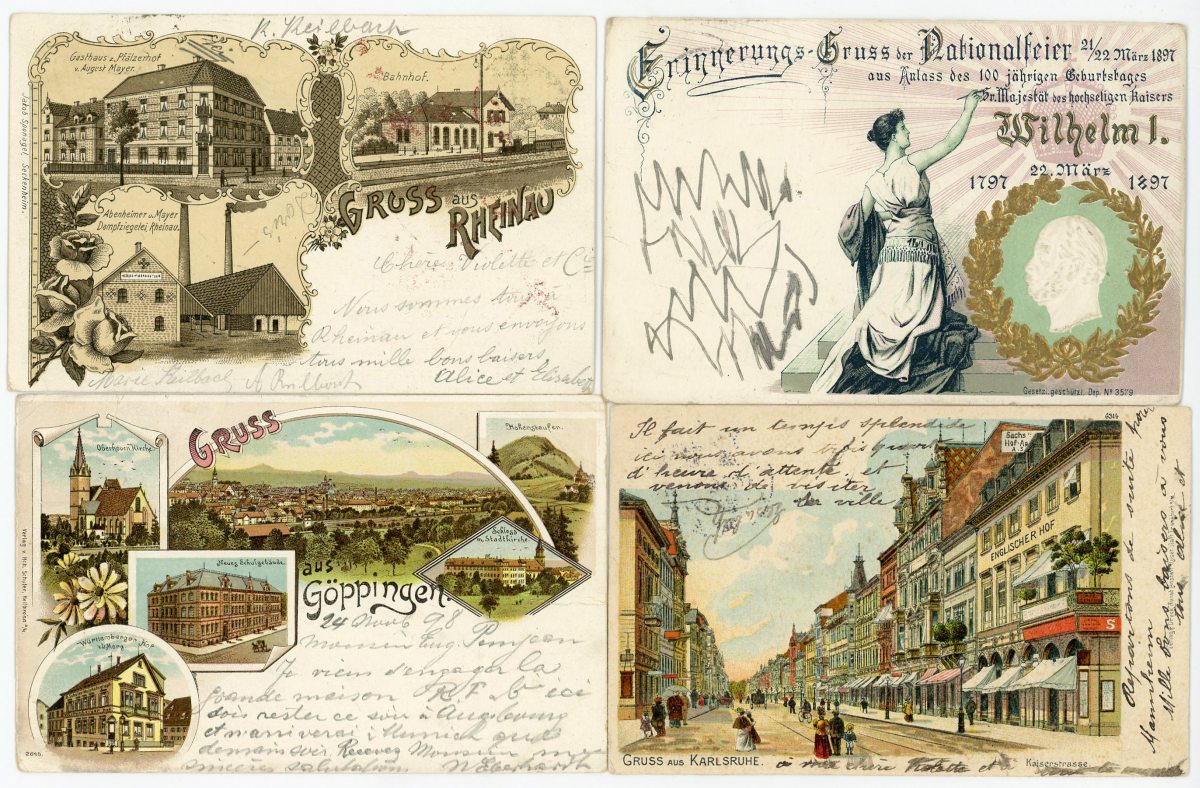 K. Keilbach
Gasthaus z. Pfälzerhof
v. August Mayer.
Bahnhof.
Jakob Sponagel Seckenheim.
Abenheimer u. Mayer
Dampfziegelei Rheinau.
GRUSS aus
RHEINAU
Chère Violette et Cie
Nous sommes tous à
Rheinau et vous envoyons
tous mille bons baisers
Alice et
Marie Keilbach
Erinnerungs-Gruss der Nationalfeier 21/22 März 1897
aus Anlass des 100 jährigen Geburtstages
Sr. Majestät des hochseligen Kaisers
Wilhelm I.
22. März
1797 1897
Gesetzl. geschützt. Dep. No 3579
GRUSS
aus
Göppingen.
Oberhofen Kirche.
Hohenstaufen.
Schloss
u. Stadtkirche.
Neues Schulgebäude.
Verlag v. Hch. Schuler, Heilbronn a/N.
2646.
24 98
Monsieur Eug.
Je viens d'engager la
grande maison K F & ici
vais rester ce soir à Augsbourg
et arriverai à Munich que
demain soir Recevez Monsieur mes
sincères salutations
Eberhardt
6314
Il fait un temps splendide
ici nous avons
d'heure d'attente et
venons de visiter
la ville
Sachs
Hof-
ENGLISCHER HOF
GRUSS AUS KARLSRUHE.
Kaiserstrasse.
à ma chère Violette et à
repartons de suite
Mannheim
Mille